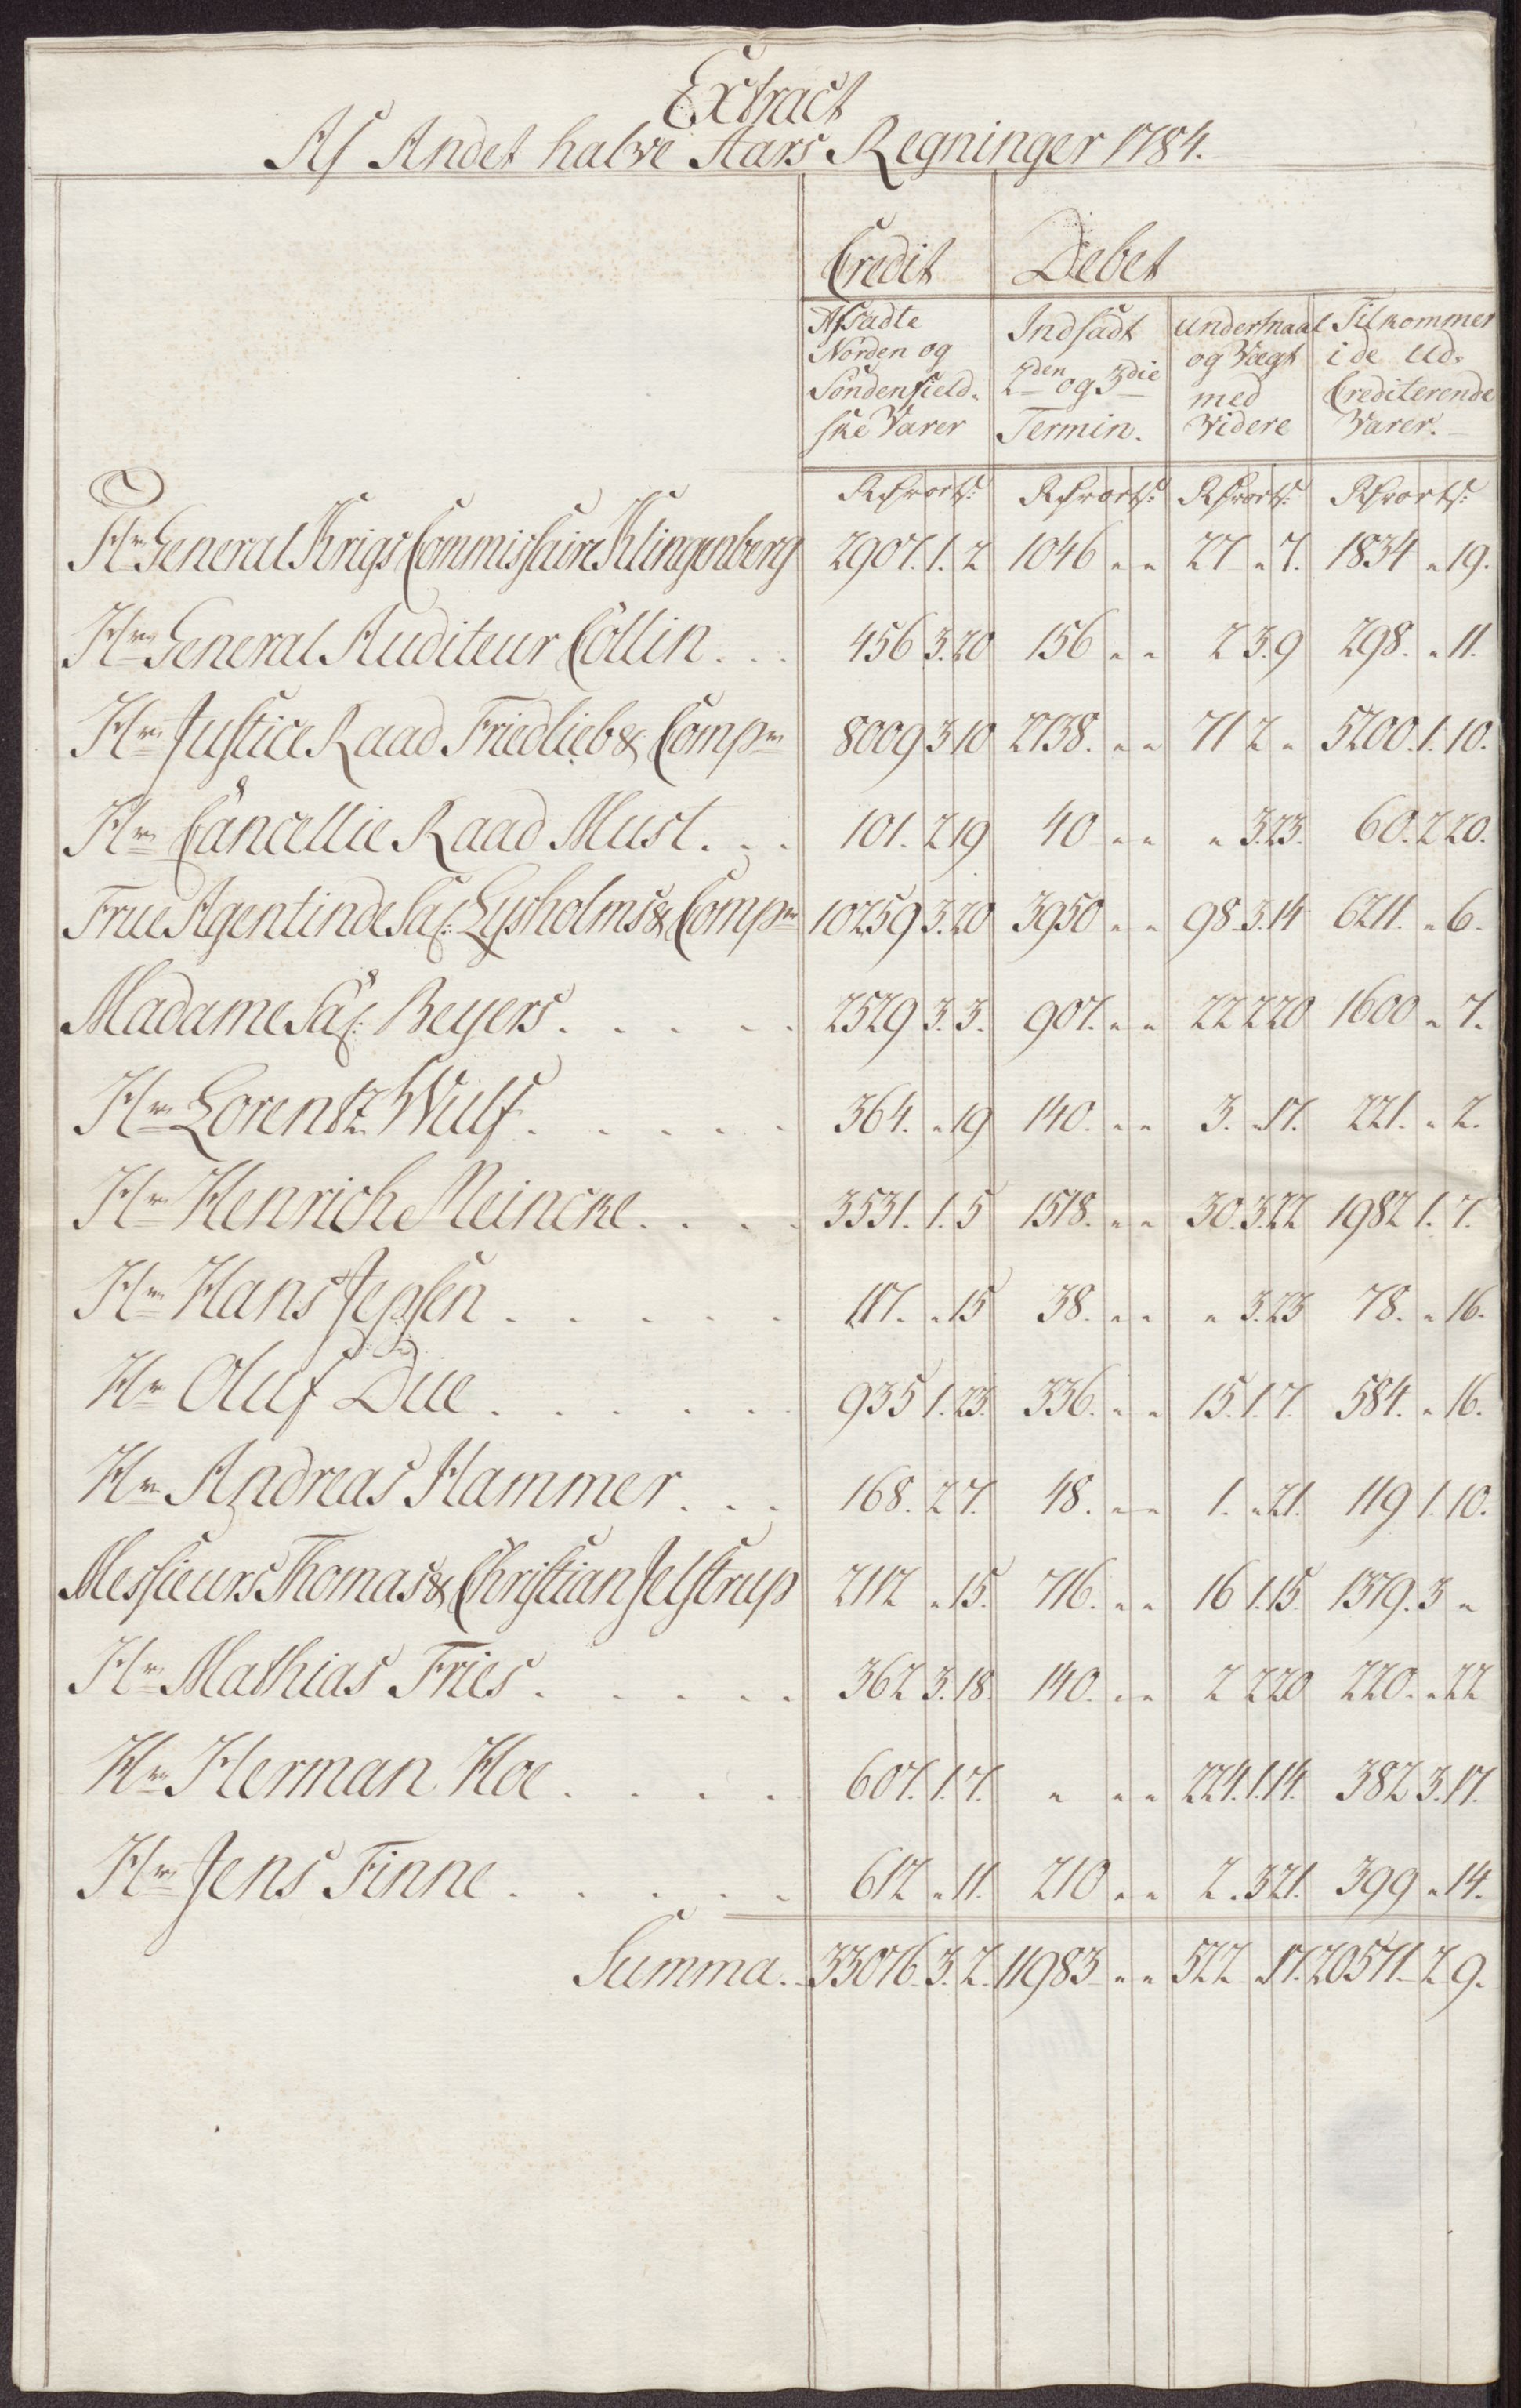 Extract
Af Andet halve Aars Regninger 1784.
Credit Debet
Afsadte
Norden og
Söndenfield-
ske Varer
Indsadt
2den og 3die
Termin.
undermaal
og Vægt
med
Videre
Tilkommer
i de Ud-
Crediterende
Varer.
Rdr ort s: Rdr ort s: Rdr ort s: Rdr ort s:
Hr General Krigs Commissaire Klingenberg 2907. 1. 2 1046 " " 27 " 7. 1834 " 19.
Hr General Auditeur Collin . . . 456 3. 20 156 " " 2 3. 9 298. " 11.
Hr Justice Raad Friedlieb & Compn 8009 3 10 2738. " " 71 2 " 5200. 1. 10.
Hr Cancellie Raad Must . . . 101. 2 19 40 " " " 3. 23. 60. 2 20.
Frue Agentinde Sal: Lysholms & Compn 10259 3. 20 3950 " " 98 3. 14 6211. " 6.
Madame Sal: Beyers . . . . . 2529 3. 3. 907. " " 22 2 20 1600 " 7.
Hr Lorentz Wulf . . . . . 364. " 19 140. " " 3. " 17. 221. " 2.
Hr Henrich Meincke . . . . 3531. 1. 5 1518. " " 30. 3. 22 1982 1. 7.
Hr Hans Jepsen . . . . . 117. " 15 38. " " " 3. 23 78. " 16.
Hr Oluf Due . . . . . . 935 1. 23. 336. " " 15. 1. 7. 584. " 16.
Hr Andreas Hammer . . . 168. 2 7. 48. " " 1. " 21. 119 1. 10.
Messieurs Thomas & Christian Jelstrup 2112 " 15. 716. " " 16 1. 15. 1379. 3 "
Hr Mathias Fries . . . . . 362 3. 18. 140. " " 2 2 20 220. " 22
Hr Herman Hoe . . . . 607. 1. 7. " " " 224. 1. 14. 382 3. 17.
Hr Jens Finne . . . . . 612 " 11. 210 " " 2. 3 21. 399 " 14.
Summa. 33076. 3. 2. 11983 " " 522 " 17. 20571. 2 9.